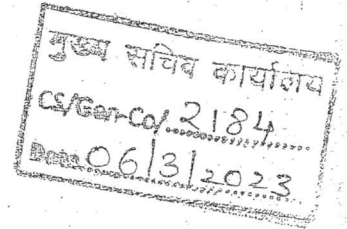 मुख्य सचिव कार्यालय
CS/Gen-Co/ 2184
Date 06/3/2023